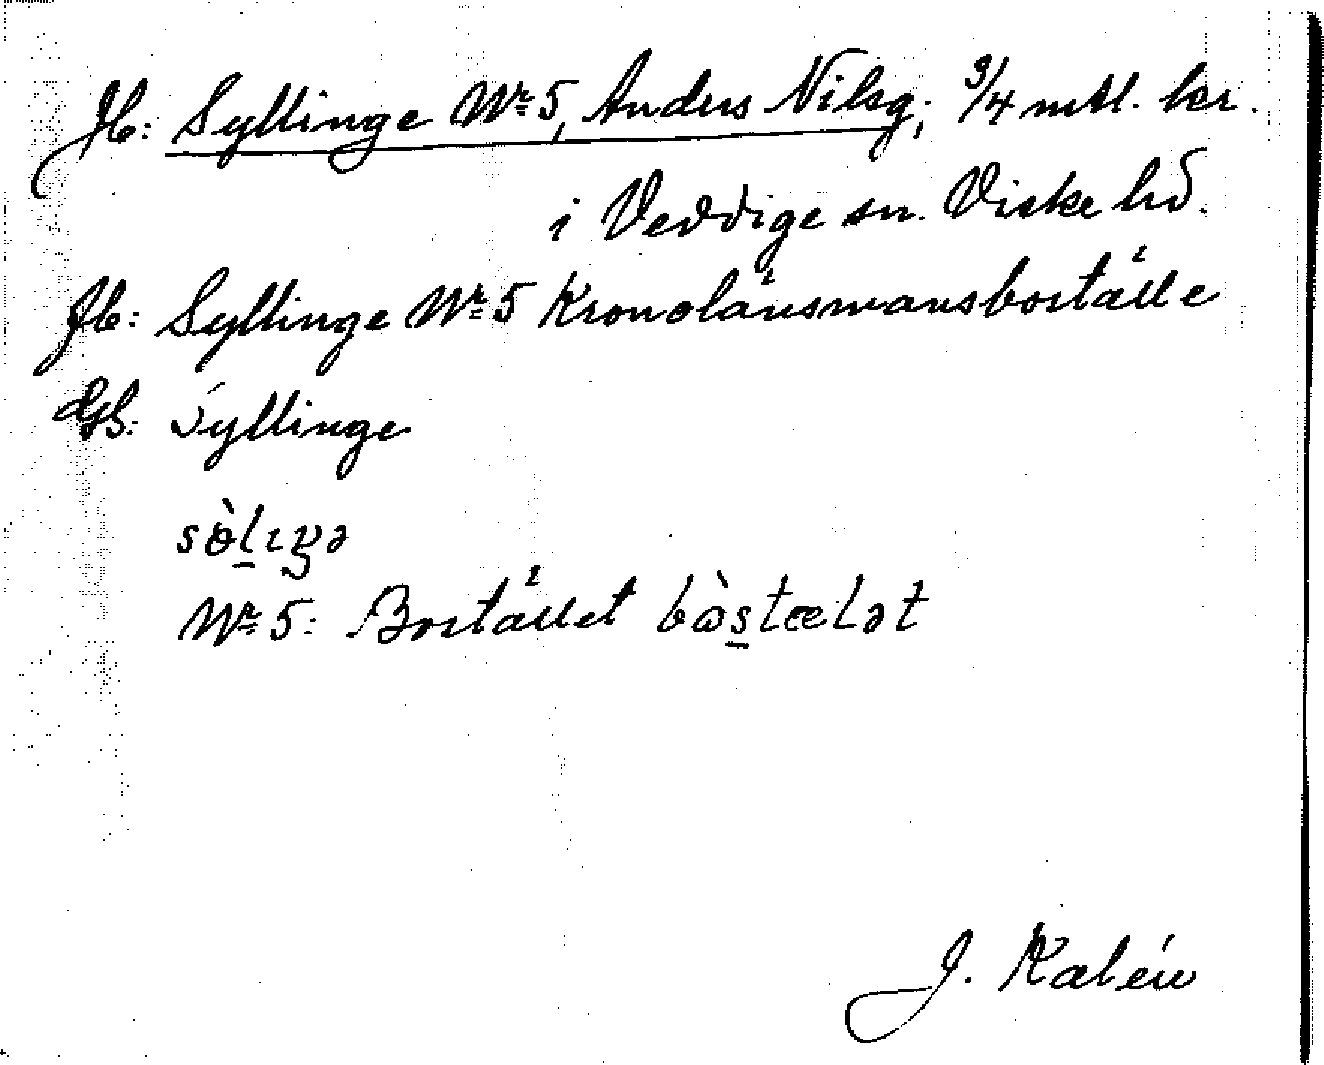 Jb: Syllinge Nr 5, Anders Nilsg; 3/4 mtl. kr.
i Veddige sn. Viske hd.
Jb: Syllinge Nr 5 Kronolänsmansboställe
GB: Syllinge
Nr 5: Bostället
J. Kalén